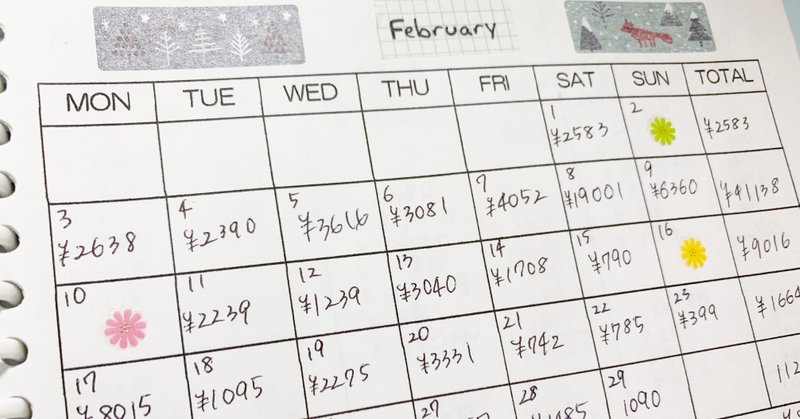 February
MON TUE WED THU FRI SAT SUN TOTAL
1 2
¥2583 ¥2583
3 4 5 6 7 8 9
¥2638 ¥2390 ¥3616 ¥3081 ¥4052 ¥19001 ¥6360 ¥41138
10 11 12 13 14 15 16
¥2239 ¥1239 ¥3040 ¥1708 ¥790 ¥9016
17 18 19 20 21 22 23
¥8015 ¥1095 ¥2275 ¥3331 ¥742 ¥785 ¥399
27 28 29
1090